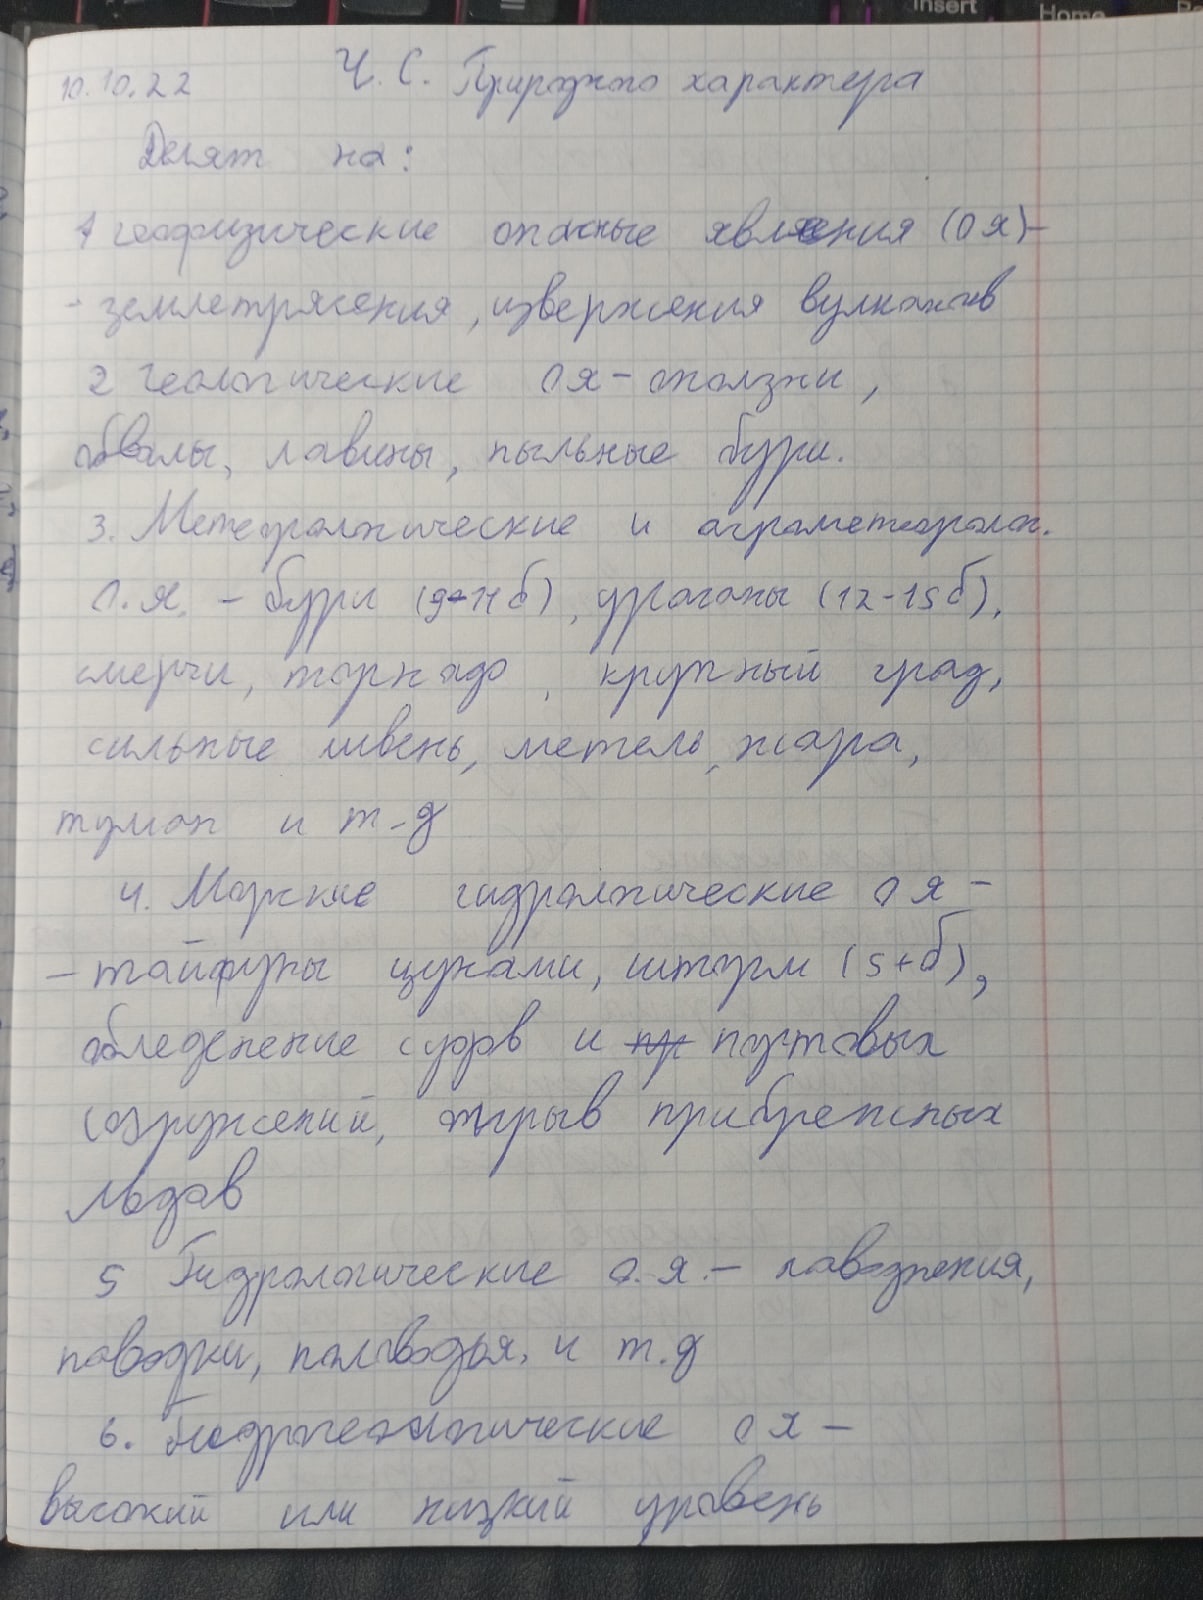 Insert
Home
10.10.22 Ч.С. Природного характера
Делят на:
1 геофизические опасные явления (ОЯ)-
- землетрясения, извержения вулканов
2 Геологические ОЯ - оползни,
обвалы, лавины, пыльные бури.
3. Метеорологические и агрометеоролог.
О.Я. - бури (9-11б), ураганы (12-15б),
смерчи, торнадо, крупный град,
сильные ливень, метель, жара,
туман и т-д
4. Морские гидрологические ОЯ -
- тайфуны цунами, шторм (5+б),
обледенение судов и портовых
сооружений, отрыв прибрежных
льдов
5 Гидрологические О.Я. - наводнения,
паводки, половодья, и т.д
6. Гидрогеологические ОЯ -
высокий или низкий уровень